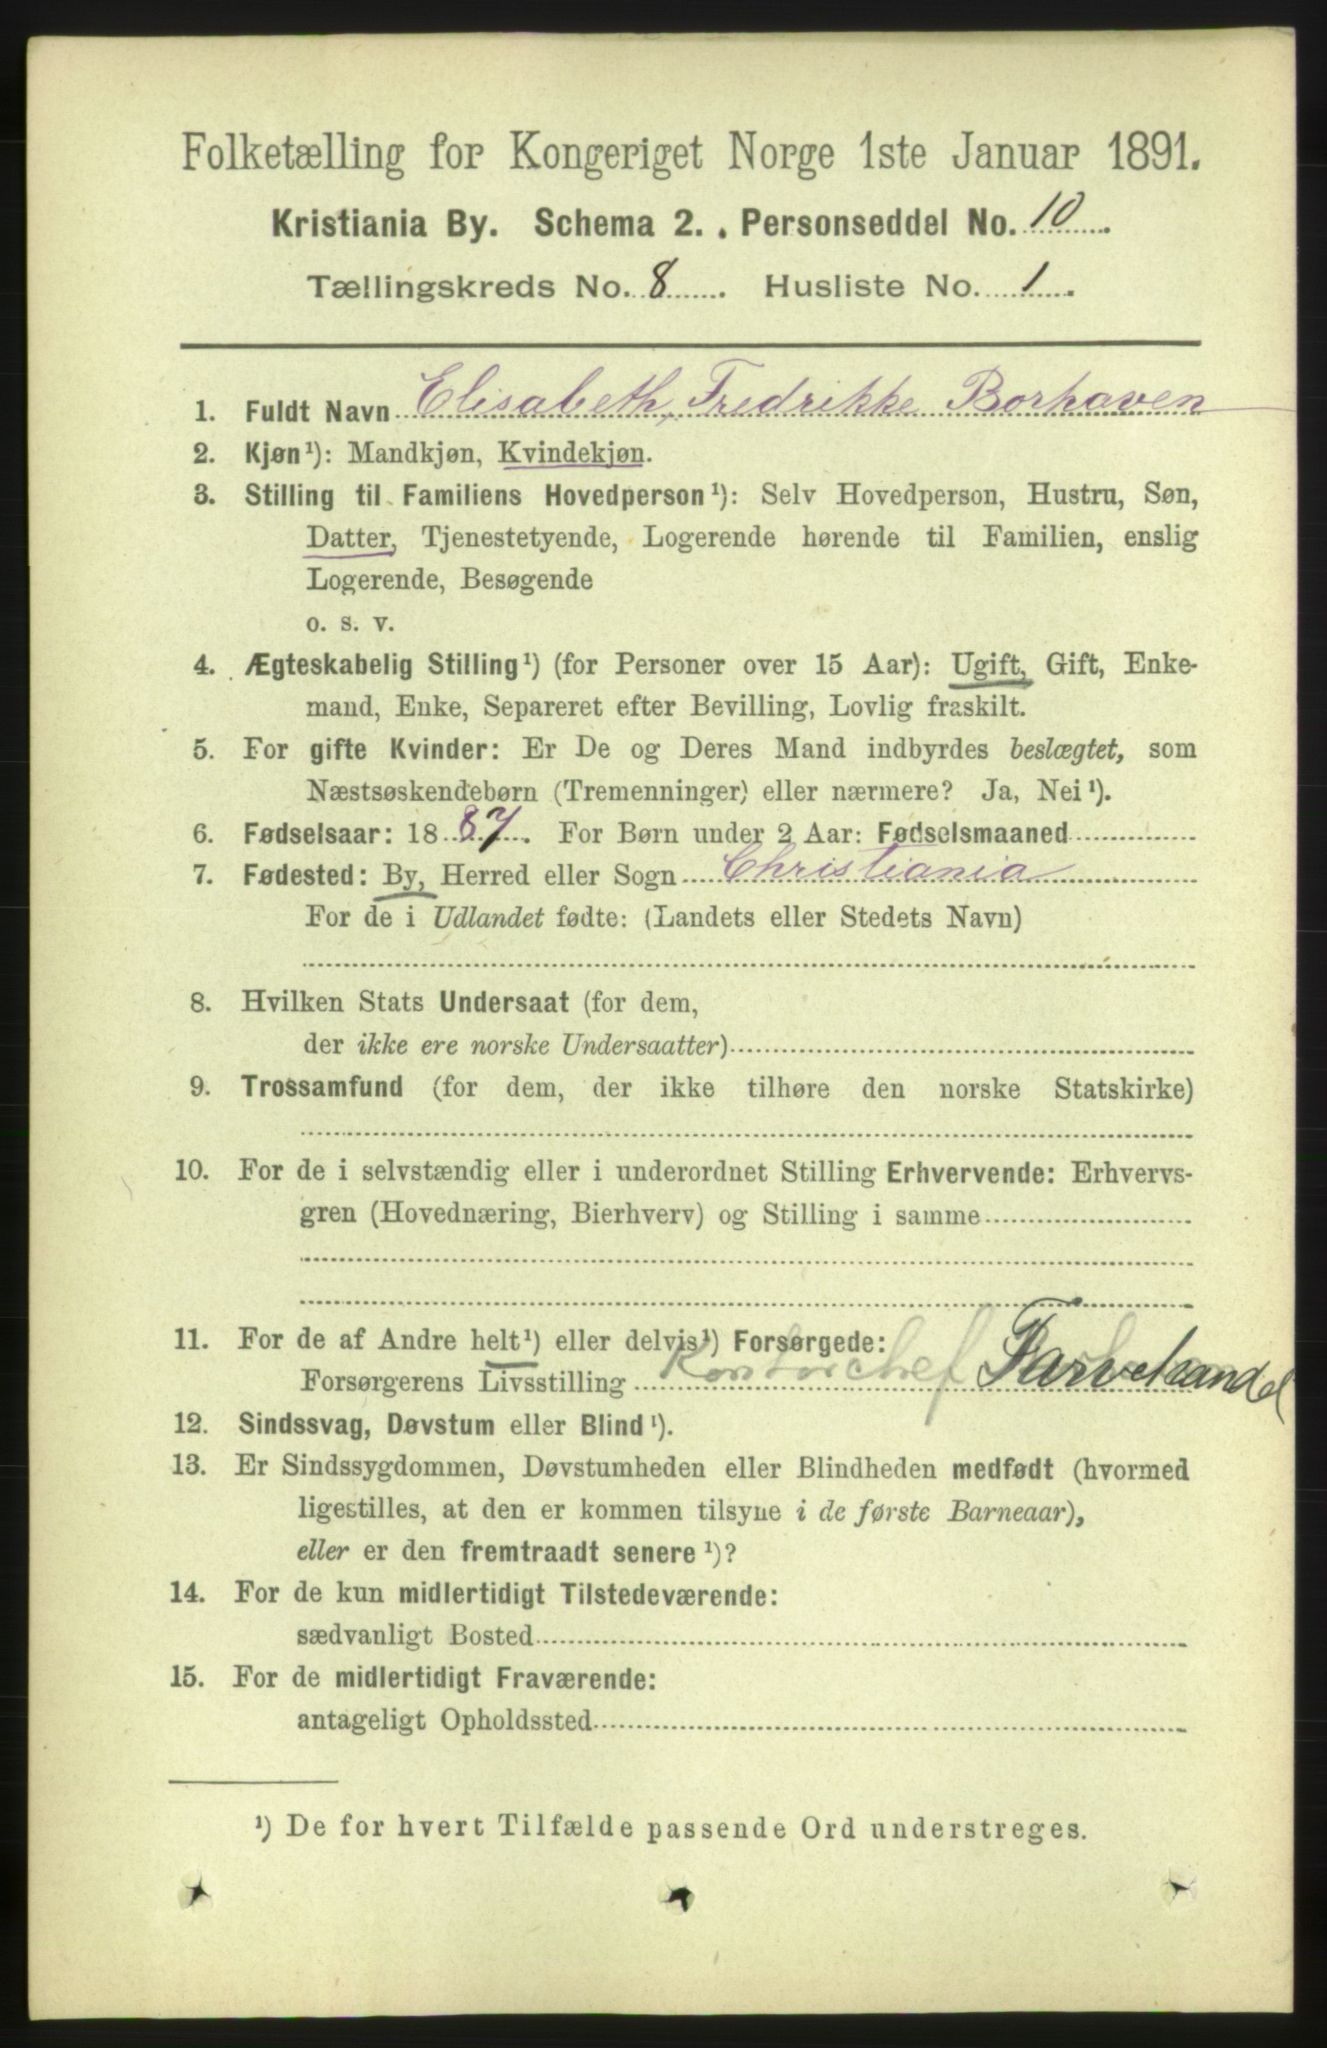 Folketælling for Kongeriget Norge 1ste Januar 1891.
Kristiania By. Schema 2. . Personseddel No. 10
Tællingskreds No. 8 Husliste No. 1
1. Fuldt Navn Elisabeth, Fredrikke Borhaven
2. Kjøn¹): Mandkjøn, Kvindekjøn.
3. Stilling til Familiens Hovedperson¹): Selv Hovedperson, Hustru, Søn,
Datter, Tjenestetyende, Logerende hørende til Familien, enslig
Logerende, Besøgende
o. s. v.
4. Ægteskabelig Stilling¹) (for Personer over 15 Aar): Ugift, Gift, Enke-
mand, Enke, Separeret efter Bevilling, Lovlig fraskilt.
5. For gifte Kvinder: Er De og Deres Mand indbyrdes beslægtet, som
Næstsøskendebørn (Tremenninger) eller nærmere? Ja, Nei¹).
6. Fødselsaar: 1887. For Børn under 2 Aar: Fødselsmaaned
7. Fødested: By, Herred eller Sogn Christiania
For de i Udlandet fødte: (Landets eller Stedets Navn)
8. Hvilken Stats Undersaat (for dem,
der ikke ere norske Undersaatter)
9. Trossamfund (for dem, der ikke tilhøre den norske Statskirke)
10. For de i selvstændig eller i underordnet Stilling Erhvervende: Erhvervs-
gren (Hovednæring, Bierhverv) og Stilling i samme
11. For de af Andre helt¹) eller delvis¹) Forsørgede:
Forsørgerens Livsstilling Kontorchef Farvehandel
12. Sindssvag, Døvstum eller Blind¹).
13. Er Sindssygdommen, Døvstumheden eller Blindheden medfødt (hvormed
ligestilles, at den er kommen tilsyne i de første Barneaar),
eller er den fremtraadt senere¹)?
14. For de kun midlertidigt Tilstedeværende:
sædvanligt Bosted
15. For de midlertidigt Fraværende:
antageligt Opholdssted
¹) De for hvert Tilfælde passende Ord understreges.